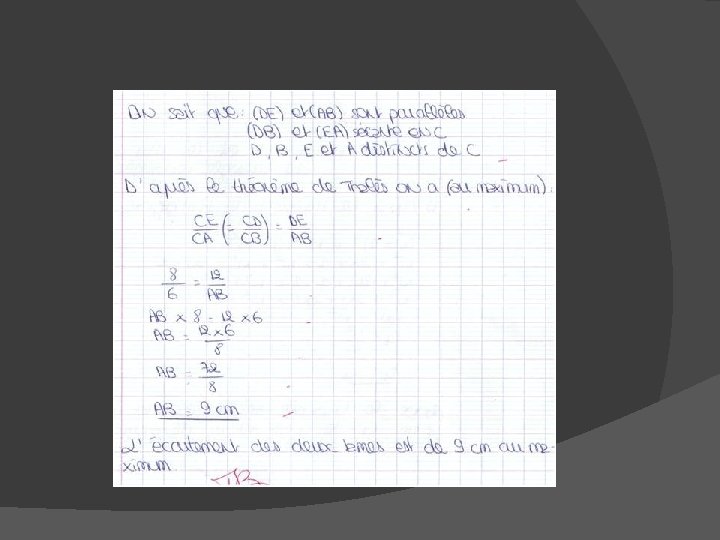 On sait que: (DE) et (AB) sont parallèles
(DB) et (EA) sécante en C
D, B, E et A distincts de C
D'après le théorème de Thalès on a (au maximum):
CE/CA (= CD/CB) = DE/AB
8/6 = 12/AB
AB x 8 = 12 x 6
AB = 12 x 6/8
AB = 72/8
AB = 9 cm
L'écartement des deux lames est de 9 cm au ma-
ximum
TB